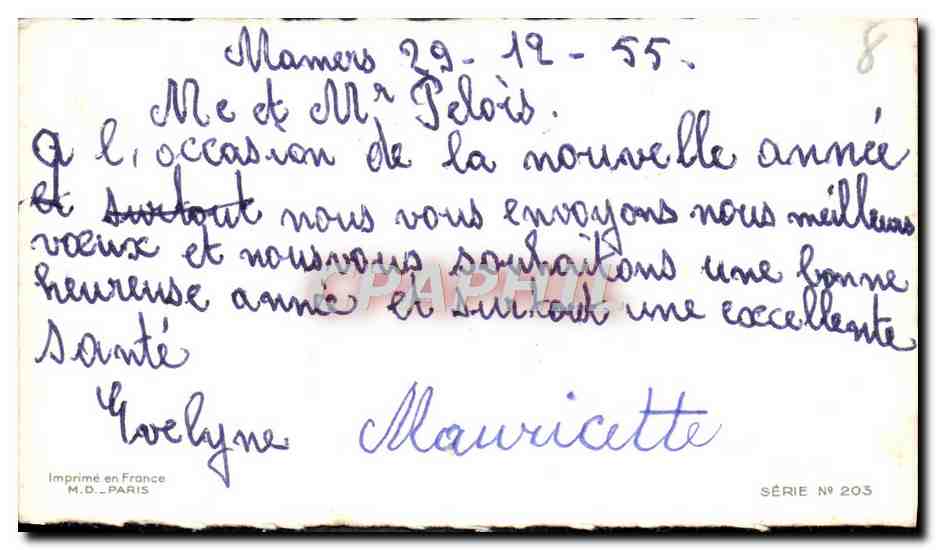 8
Mamers 29-12-55.
Me et Mr Pelois.
A l'occasion de la nouvelle année
et surtout nous vous envoyons nous meilleurs
vœux et nous vous souhaitons une bonne
heureuse année et surtout une excellente
santé
Evelyne Mauricette
Imprimé en France
M.D._PARIS
SÉRIE Nº 203
CPAPHIL